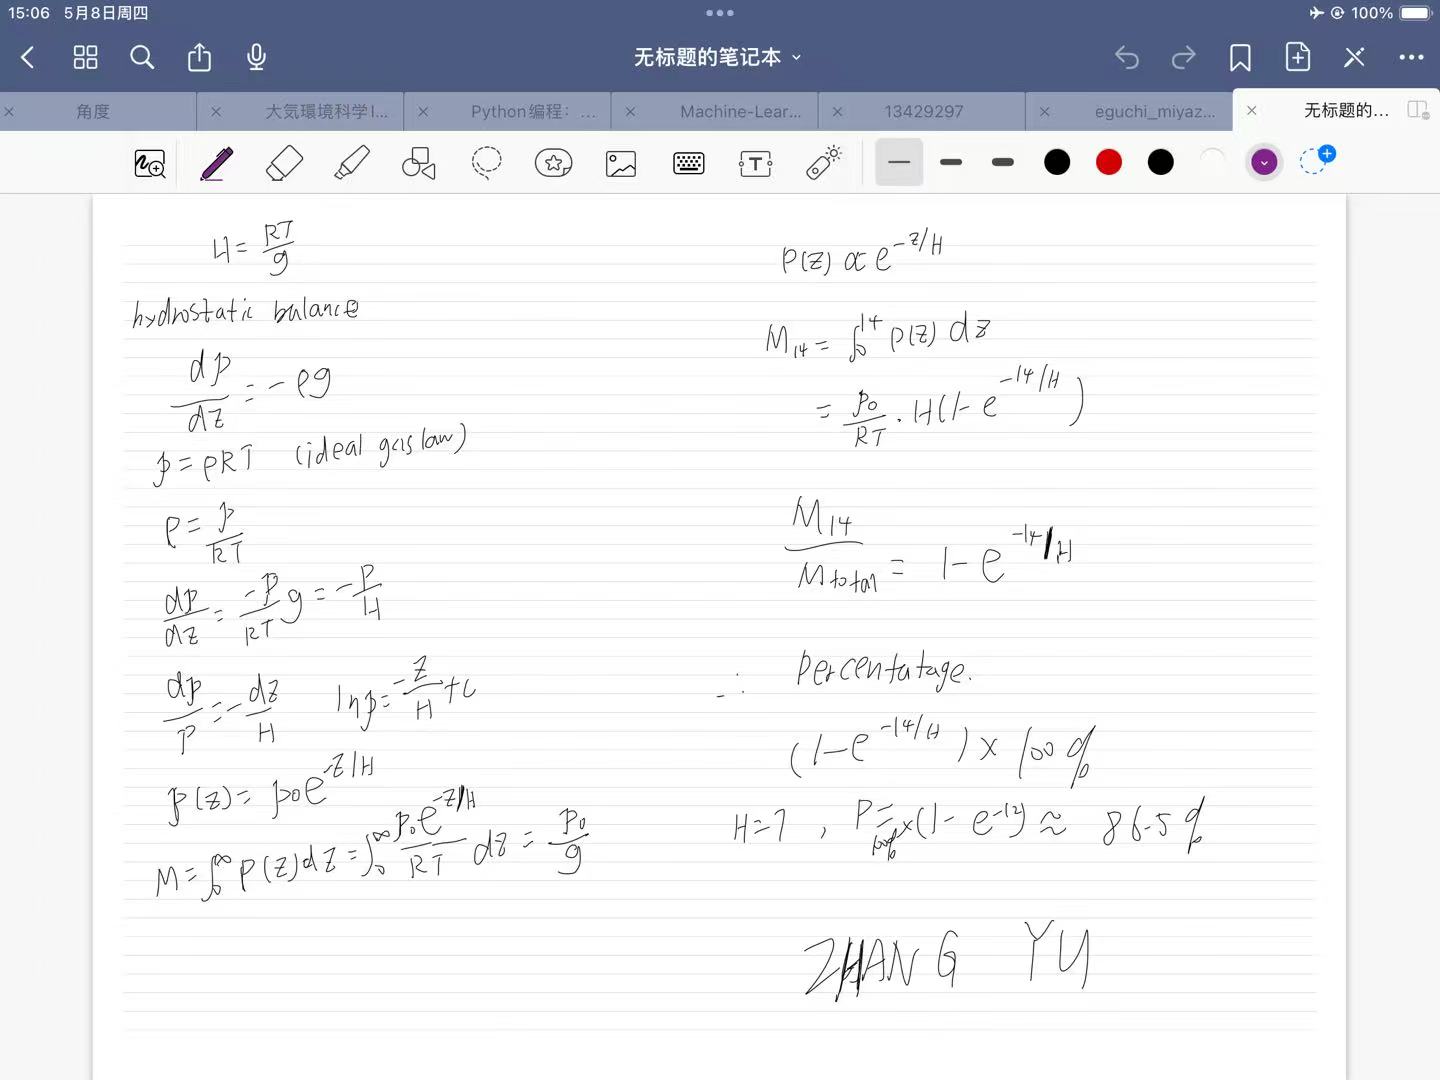 15:06 5月8日周四
100%
无标题的笔记本
角度
大気環境科学I...
Python编程：...
Machine-Lear...
13429297
eguchi_miyaz...
无标题的...
H = RT/g
hydrostatic balance
dp/dz = -ρg
p = ρRT (ideal gas law)
ρ = p/RT
dp/dz = -p/RT g = -p/H
dp/p = -dz/H ln p = -z/H + c
p(z) = p₀e^(-z/H)
M = ∫₀^∞ ρ(z)dz = ∫₀^∞ p₀e^(-z/H)/RT dz = p₀/g
ρ(z) ∝ e^(-z/H)
M₁₄ = ∫₀^14 ρ(z) dz
= p₀/RT · H(1 - e^(-14/H))
M₁₄/Mtotal = 1 - e^(-14/H)
∴ Percentatage.
(1 - e^(-14/H)) × 100%
H = 7, P = 100% × (1 - e^(-2)) ≈ 86.5%
ZHANG YU